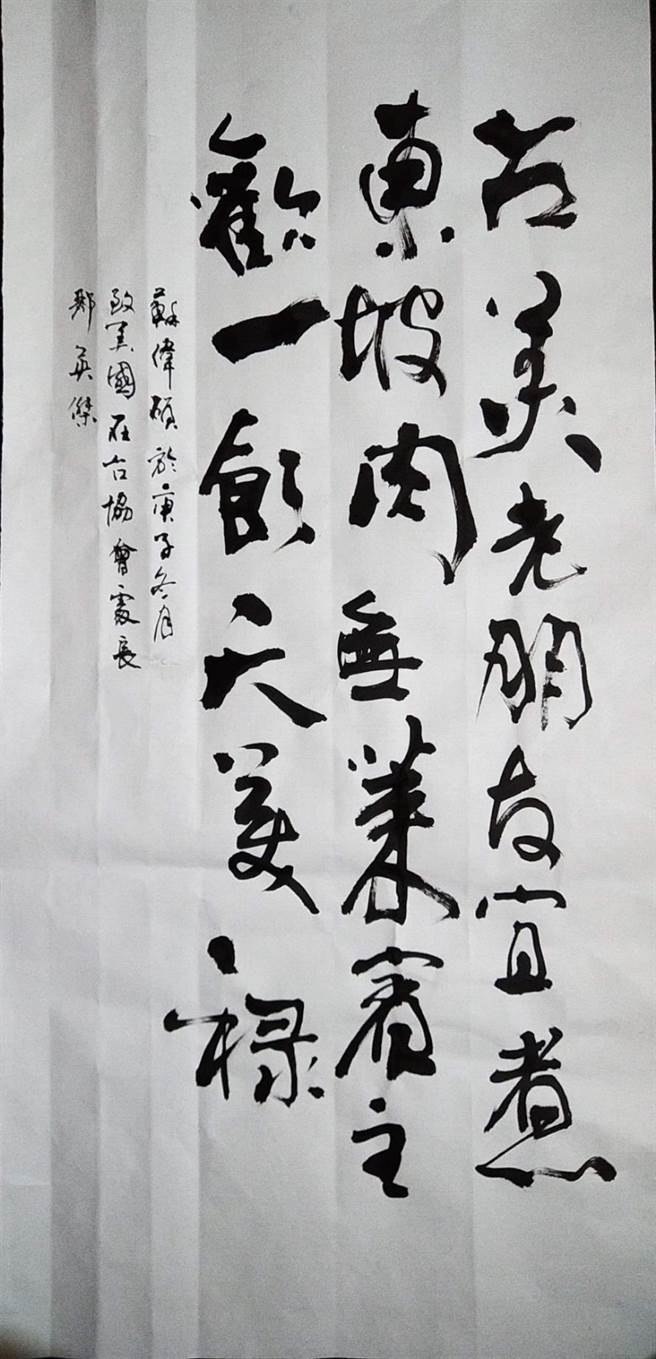 台美老朋友宜煮
東坡肉無萊賓主
歡一飲天美祿
蘇偉碩於庚子冬月
致美國在台協會處長
酈英傑